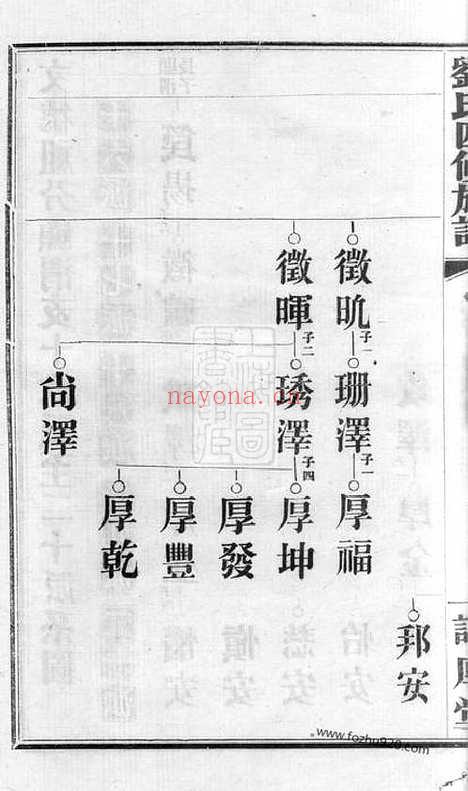 劉氏四修族譜
邦安
徵昿子一
珊澤子一
厚福
徵暉子二
琇澤子四
厚坤
厚發
厚豐
厚乾
尚澤
nayona.cn
www.fozhu920.com